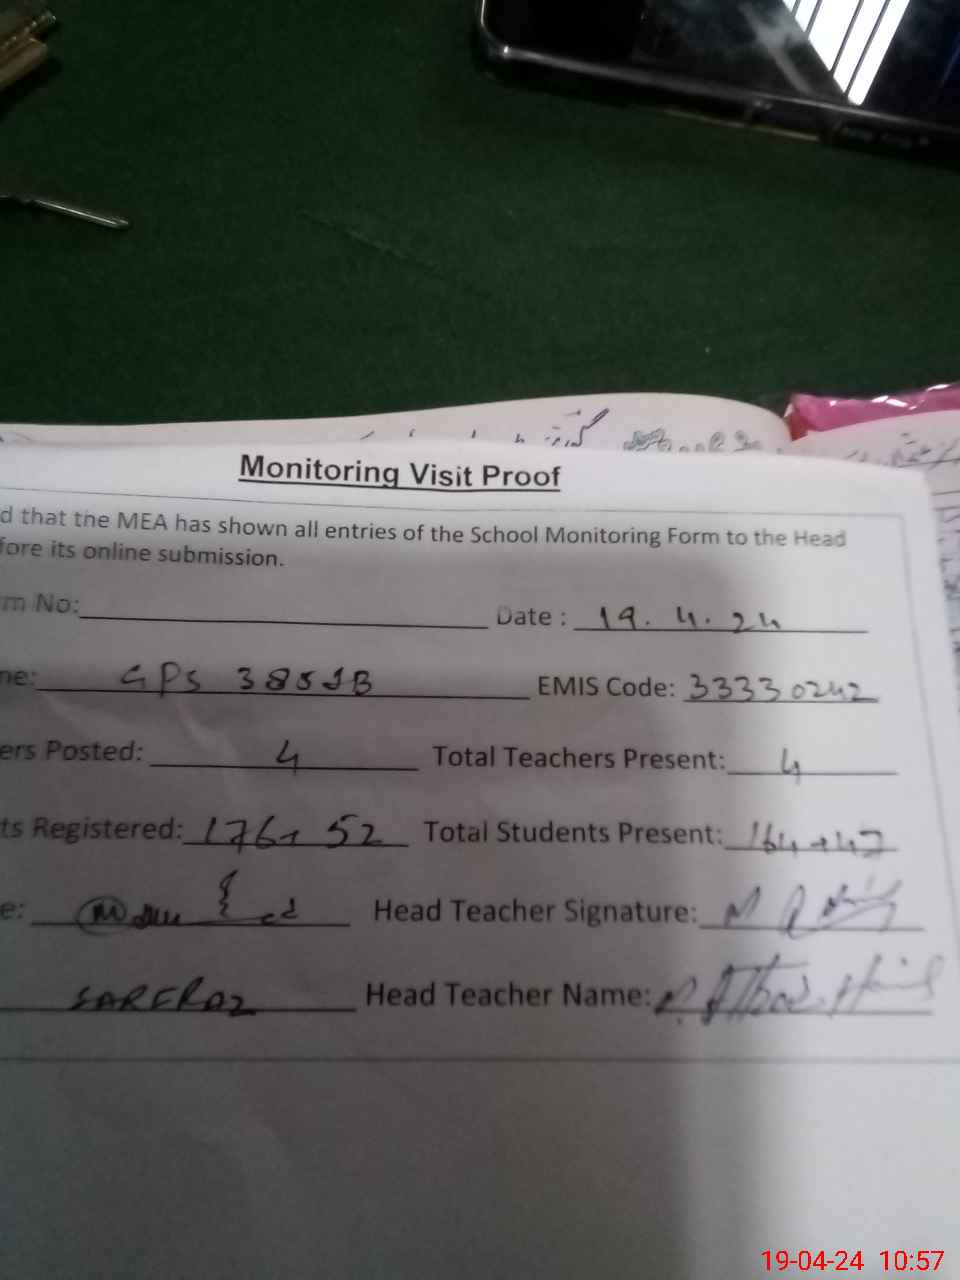 Monitoring Visit Proof
d that the MEA has shown all entries of the School Monitoring Form to the Head
fore its online submission.
m No: Date : 19.4.24
ne: GPS 385JB EMIS Code: 33330242
ers Posted: 4 Total Teachers Present: 4
ts Registered: 176+52 Total Students Present: 164+47
e: Head Teacher Signature:
SARFRAZ Head Teacher Name:
19-04-24 10:57